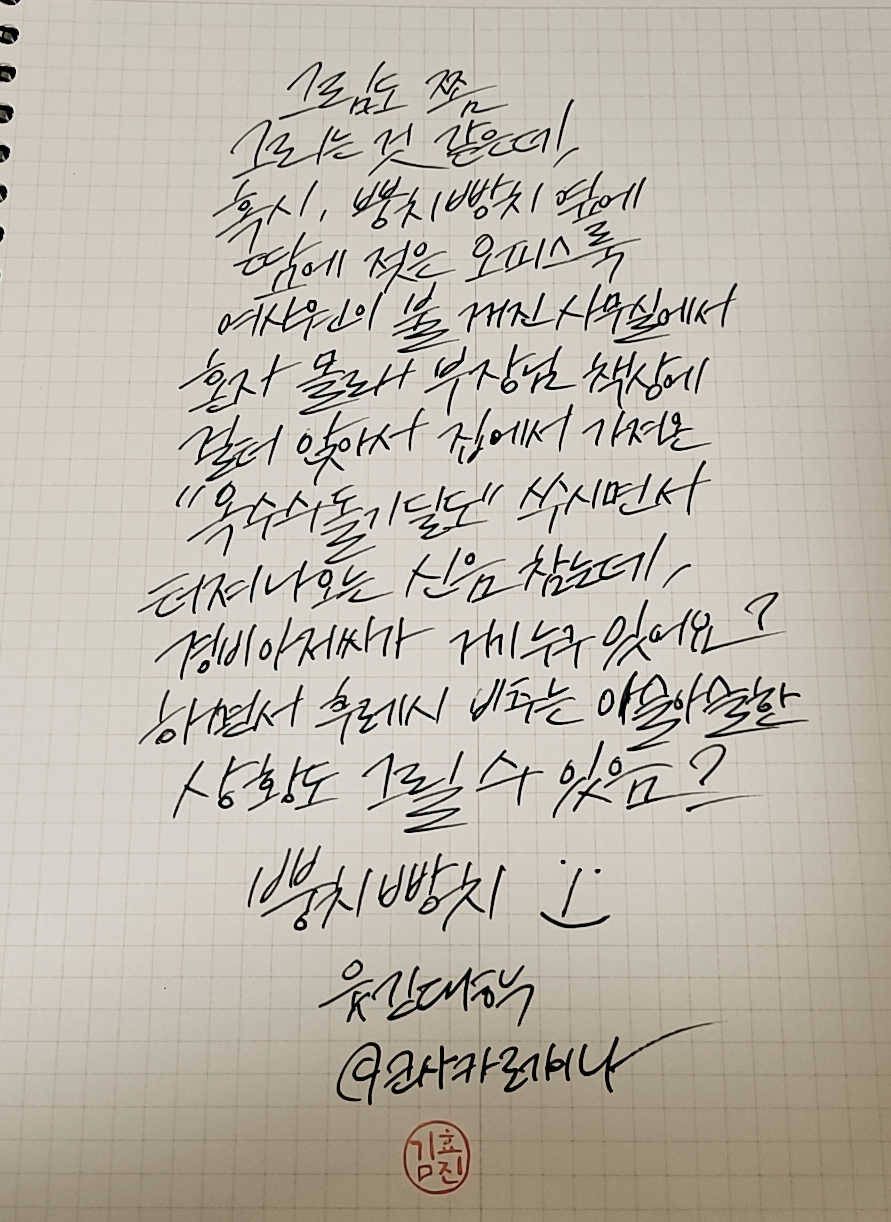 그림도 쫌
그리는 것 같은데,
혹시, 뿡치빵치 옆에
땀에 젖은 오피스룩
여사원이 불 꺼진 사무실에서
혼자 몰라 부장님 책상에
걸터 앉아서 집에서 가져온
"옥수수돌기딜도" 쑤시면서
터져나오는 신음 참는데,
경비아저씨가 거기누구 있어요?
하면서 후레시 비추는 아슬아슬한
상황도 그릴 수 있음?
뿡치빵치 :)
웃긴대학
@코사카레이나
김효진